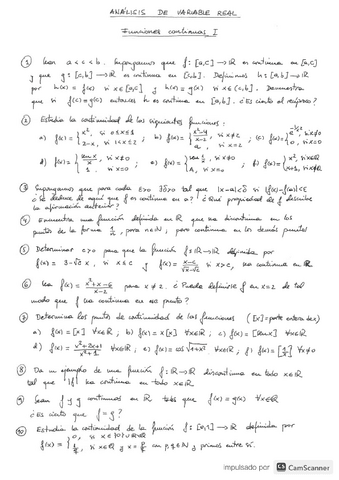 ANÁLISIS DE VARIABLE REAL
Funciones continuas I
① Sean a<c<b. Supongamos que f: [a,c] → ℝ es continua en [a,c]
y que g: [c,b] → ℝ es continua en [c,b]. Definimos h: [a,b] → ℝ
por h(x) = f(x) si x ∈ [a,c] y h(x) = g(x) si x ∈ (c,b]. Demuestra
que si f(c) = g(c) entonces h es continua en [a,b]. ¿Es cierto el recíproco?
② Estudia la continuidad de las siguientes funciones:
a) f(x) = { x², si 0≤x≤1 ; 2-x, si 1<x≤2 ; b) f(x) = { si x≠2 ; a, si x=2 ; c) f(x) = { si x≠0 ; 0, si x=0
d) f(x) = { sen x / x, si x≠0 ; 1, si x=0 ; e) f(x) = { si x≠0 ; A, si x=0 ; f) f(x) = { x², si x∈ℚ
③ Supongamos que para cada ε>0 ∃δ>0 tal que |x-a|<δ si |f(x)-f(a)|<ε
¿Se deduce de aquí que f es continua en a? ¿Qué propiedad de f describe
la afirmación anterior?
④ Encuentra una función definida en ℝ que sea discontinua en los
puntos de la forma 1/n, para n∈ℕ, pero continua en los demás puntos
⑤ Determinar c>0 para que la función f: ℝ → ℝ definida por
f(x) = 3-√c x, si x ≤ c y f(x) = (x-c)/(√x-√c) si x>c, sea continua en ℝ
⑥ Sea f(x) = (x²+x-6)/(x-2) para x≠2. ¿Puede definirse f en x=2 de tal
modo que f sea continua en ese punto?
⑦ Determina los puntos de continuidad de las funciones ([x]= parte entera de x)
a) f(x) = [x] ∀x∈ℝ ; b) f(x) = x[x] ∀x∈ℝ ; c) f(x) = [sen x] ∀x∈ℝ
d) f(x) = (x²+2x+1)/(x²+1) ∀x∈ℝ ; e) f(x) = cos √(1+x²) ∀x∈ℝ ; f) f(x) = [1/x] ∀x≠0
⑧ Da un ejemplo de una función f: ℝ → ℝ discontinua en todo x∈ℝ
tal que |f| sea continua en todo x∈ℝ
⑨ Sean f y g continuas en ℝ tales que f(x) = g(x)
¿Es cierto que f = g?
⑩ Estudia la continuidad de la función f: [0,1] → ℝ definida por
f(x) = { 0, si x∈ ; si x∈ℚ y x = p/q con p,q∈ℕ y primos entre sí.
impulsado por CS CamScanner